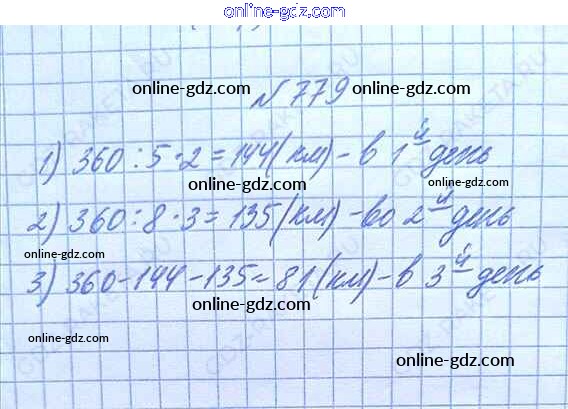 online-gdz.com
№779
online-gdz.com online-gdz.com
1) 360 : 5 · 2 = 144 (км) - в 1й день
online-gdz.com online-gdz.com
2) 360 : 8 · 3 = 135 (км) - во 2й день
online-gdz.com online-gdz.com
3) 360 - 144 - 135 = 81 (км) - в 3й день
online-gdz.com
online-gdz.com
online-gdz.com